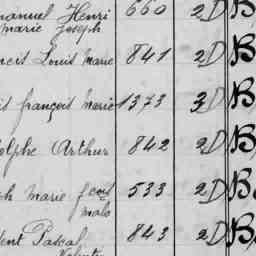 manuel Henri 660 2 D B
Marie Joseph
Louis Marie 841 2 D B
françois Marie 1373 3 D B
olphe Arthur 842 2 D B
ph Marie fcois 533 2 D B
malo
dent Pascal 843 2 D B